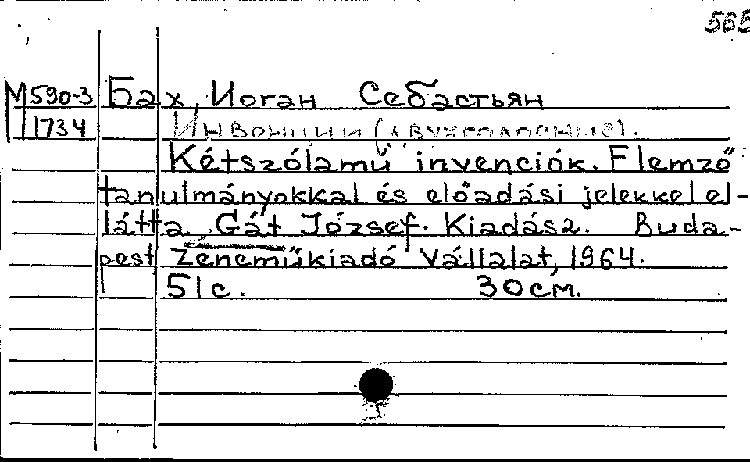 565
М590-3 Бах, Иоган Себастьян
1734 Инвенции (двухголосные).
Kétszólamű invenciók. Elemző
tanulmányokkal és előadási jelekkel el-
látta Gát József. Kiadás2. Buda-
pest Zeneműkiadó Vállalat, 1964.
51c. 30см.